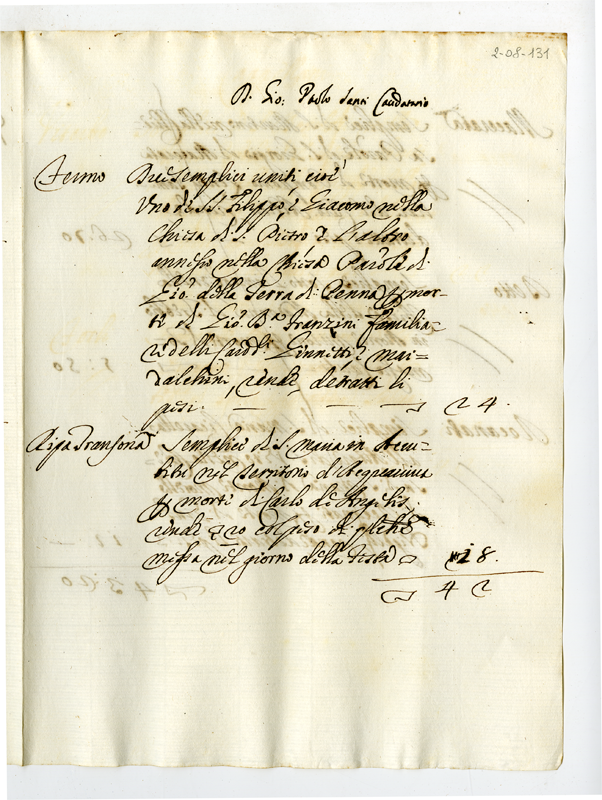 2-08-131
D. Gio: Paolo Santi Caudatario
Fermo Due semplici uniti cioè
Uno di SS. Filippo, e Giacomo nella
Chiesa di S. Pietro, e l'altro
annesso nella Chiesa Parole di
Gio: della Terra di Penna p mor=
te di Gio: Ba Franzini familia=
re delli Cardli Ginnetti, e Mai=
dalchini, rende detratti li
pesi 24.
Ripa Transona Semplice di S. Maria in
nel territorio d'Acquaviva
p morte di Carlo de Angelis,
rende 20 col peso di
messa nel giorno della festa 18.
42